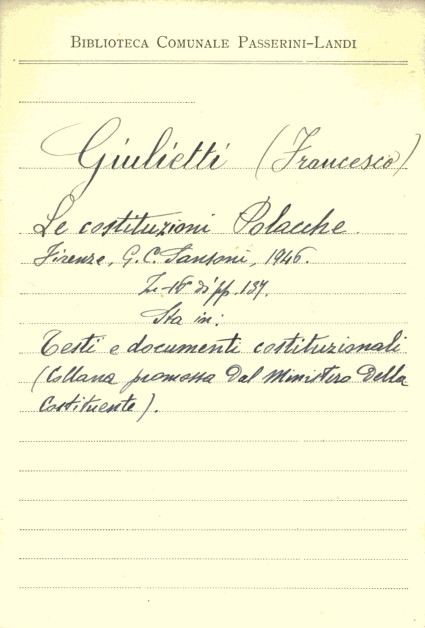 BIBLIOTECA COMUNALE PASSERINI-LANDI
Giulietti (Francesco)
Le costituzioni Polacche.
Firenze, G. C. Sansoni, 1946.
In-16° di pp. 137.
Sta in:
Testi e documenti costituzionali
(Collana promossa dal Ministero della
Costituente).